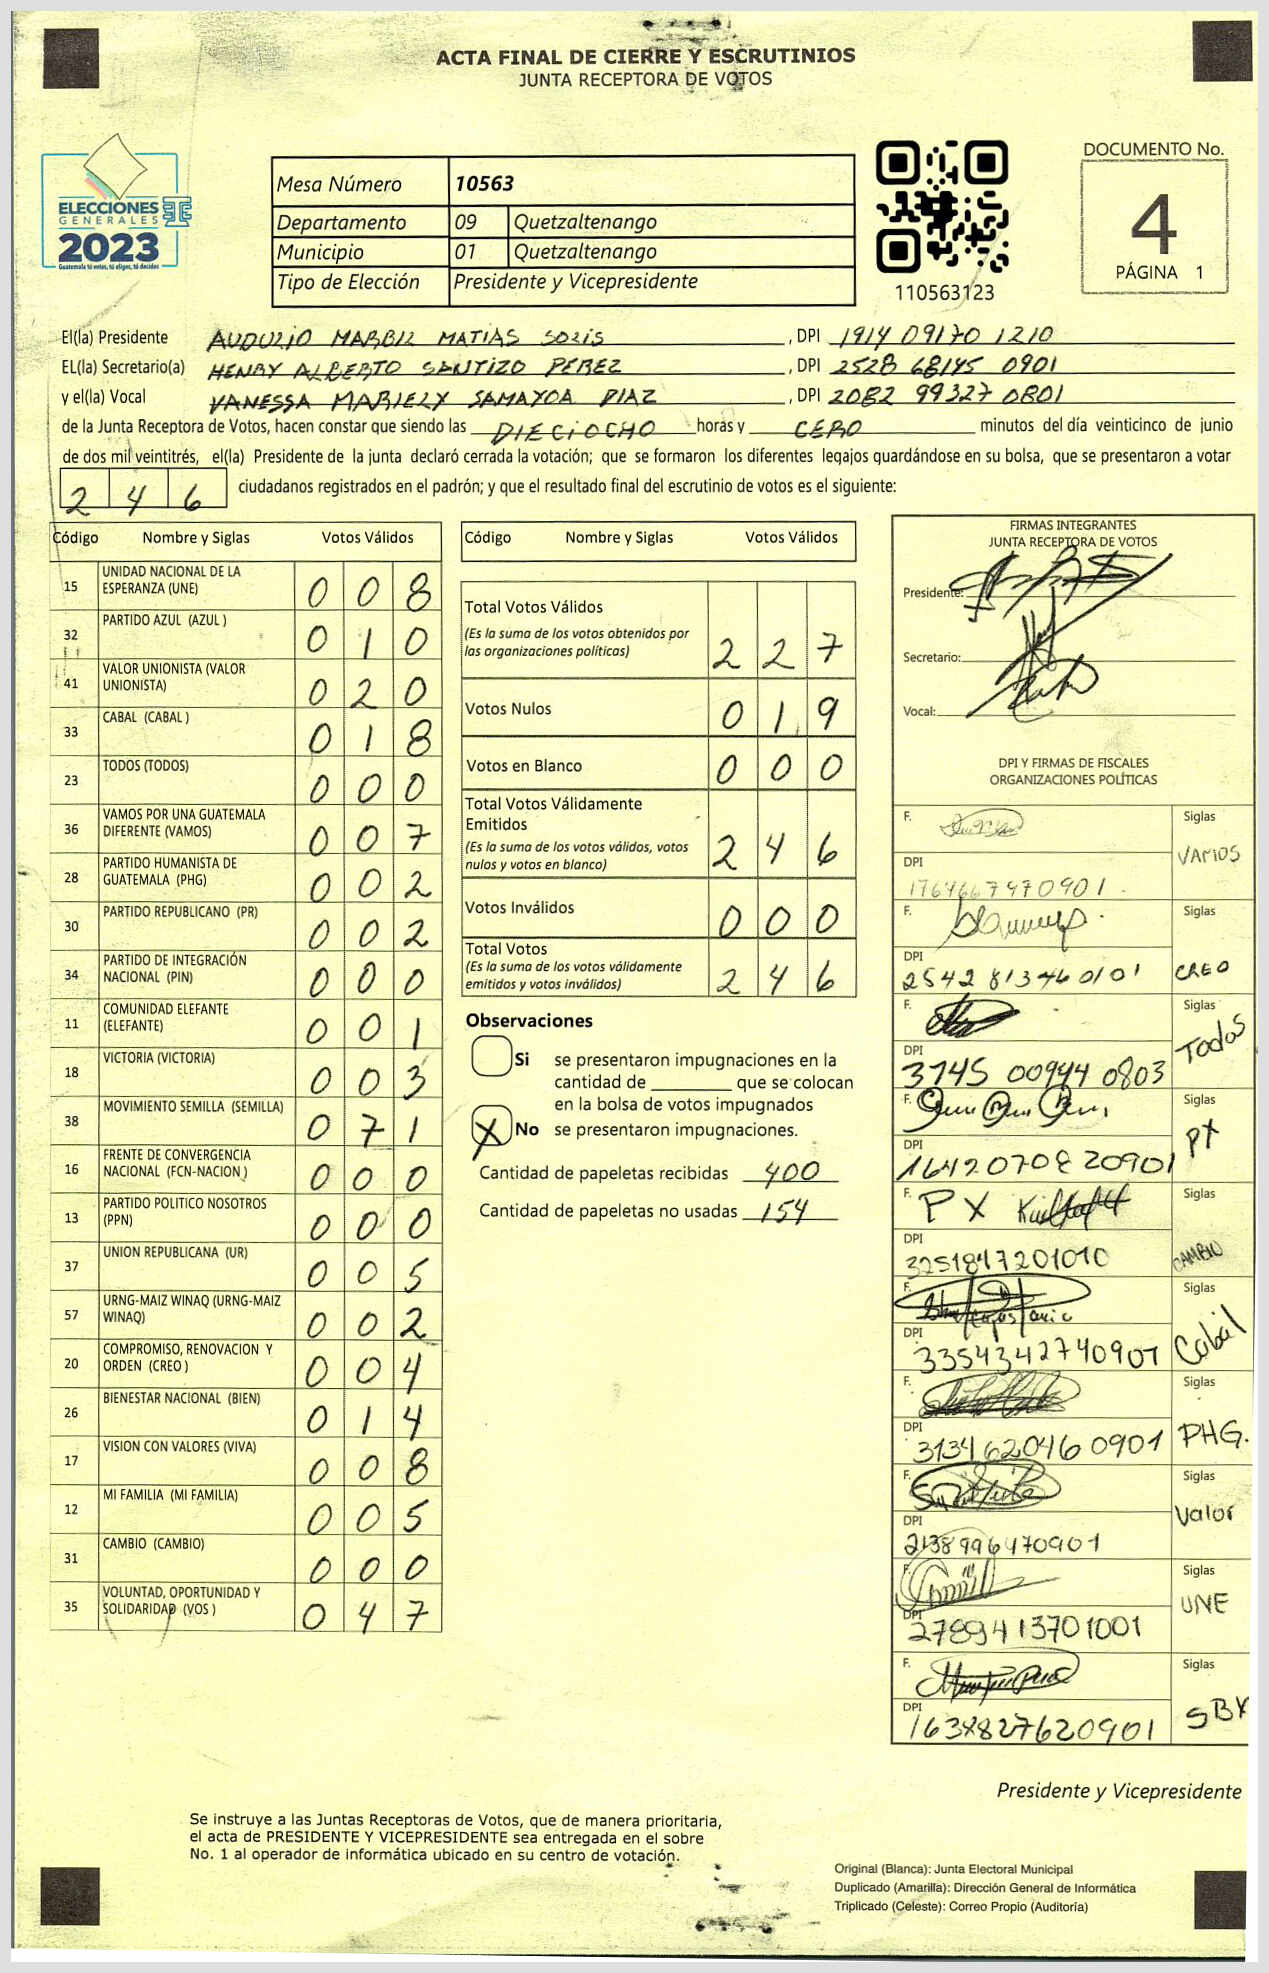 ACTA FINAL DE CIERRE Y ESCRUTINIOS
JUNTA RECEPTORA DE VOTOS
ELECCIONES
GENERALES
2023
Guatemala tú votas, tú eliges, tú decides
Mesa Número 10563
Departamento 09 Quetzaltenango
Municipio 01 Quetzaltenango
Tipo de Elección Presidente y Vicepresidente
110563123
DOCUMENTO No.
4
PÁGINA 1
El(la) Presidente AUDULIO MARBIL MATIAS SOLIS, DPI 1914 09170 1210
EL(la) Secretario(a) HENRY ALBERTO SANTIZO PEREZ, DPI 2528 68145 0901
y el(la) Vocal VANESSA MARIELY SAMAYOA DIAZ, DPI 2082 99327 0801
de la Junta Receptora de Votos, hacen constar que siendo las DIECIOCHO horas y CERO minutos del día veinticinco de junio
de dos mil veintitrés, el(la) Presidente de la junta declaró cerrada la votación; que se formaron los diferentes legajos guardándose en su bolsa, que se presentaron a votar
2 4 6 ciudadanos registrados en el padrón; y que el resultado final del escrutinio de votos es el siguiente:
Código Nombre y Siglas Votos Válidos
15 UNIDAD NACIONAL DE LA ESPERANZA (UNE) 0 0 8
32 PARTIDO AZUL (AZUL ) 0 1 0
41 VALOR UNIONISTA (VALOR UNIONISTA) 0 2 0
33 CABAL (CABAL ) 0 1 8
23 TODOS (TODOS) 0 0 0
36 VAMOS POR UNA GUATEMALA DIFERENTE (VAMOS) 0 0 7
28 PARTIDO HUMANISTA DE GUATEMALA (PHG) 0 0 2
30 PARTIDO REPUBLICANO (PR) 0 0 2
34 PARTIDO DE INTEGRACIÓN NACIONAL (PIN) 0 0 0
11 COMUNIDAD ELEFANTE (ELEFANTE) 0 0 1
18 VICTORIA (VICTORIA) 0 0 3
38 MOVIMIENTO SEMILLA (SEMILLA) 0 7 1
16 FRENTE DE CONVERGENCIA NACIONAL (FCN-NACION ) 0 0 0
13 PARTIDO POLITICO NOSOTROS (PPN) 0 0 0
37 UNION REPUBLICANA (UR) 0 0 5
57 URNG-MAIZ WINAQ (URNG-MAIZ WINAQ) 0 0 2
20 COMPROMISO, RENOVACION Y ORDEN (CREO ) 0 0 4
26 BIENESTAR NACIONAL (BIEN) 0 1 4
17 VISION CON VALORES (VIVA) 0 0 8
12 MI FAMILIA (MI FAMILIA) 0 0 5
31 CAMBIO (CAMBIO) 0 0 0
35 VOLUNTAD, OPORTUNIDAD Y SOLIDARIDAD (VOS ) 0 4 7
Código Nombre y Siglas Votos Válidos
Total Votos Válidos 2 2 7
(Es la suma de los votos obtenidos por
las organizaciones políticas)
Votos Nulos 0 1 9
Votos en Blanco 0 0 0
Total Votos Válidamente
Emitidos 2 4 6
(Es la suma de los votos válidos, votos
nulos y votos en blanco)
Votos Inválidos 0 0 0
Total Votos 2 4 6
(Es la suma de los votos válidamente
emitidos y votos inválidos)
Observaciones
Si se presentaron impugnaciones en la
cantidad de ________ que se colocan
en la bolsa de votos impugnados
X No se presentaron impugnaciones.
Cantidad de papeletas recibidas 400
Cantidad de papeletas no usadas 154
FIRMAS INTEGRANTES
JUNTA RECEPTORA DE VOTOS
Presidente:
Secretario:
Vocal:
DPI Y FIRMAS DE FISCALES
ORGANIZACIONES POLÍTICAS
F. Siglas VAMOS
DPI
F. Siglas CREO
DPI 2542 81346 0101
F. Siglas Todos
DPI 3745 00944 0803
F. Siglas PX
DPI 1642070820901
F. PX Siglas CAMBIO
DPI 3251847201010
F. Siglas Cabal
DPI 3354342740901
F. Siglas PHG.
DPI 3134620460901
F. Siglas Valor
DPI 2138996470901
F. Siglas UNE
DPI 2789413701001
F. Siglas SBX
DPI 1638827620901
Presidente y Vicepresidente
Se instruye a las Juntas Receptoras de Votos, que de manera prioritaria,
el acta de PRESIDENTE Y VICEPRESIDENTE sea entregada en el sobre
No. 1 al operador de informática ubicado en su centro de votación.
Original (Blanca): Junta Electoral Municipal
Duplicado (Amarilla): Dirección General de Informática
Triplicado (Celeste): Correo Propio (Auditoría)